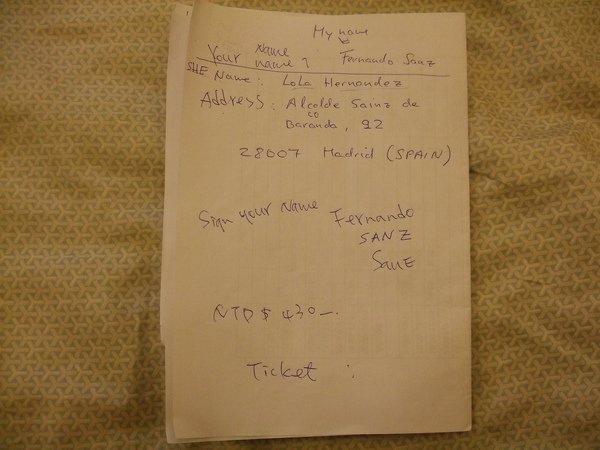 My name
is
Your name
name? Fernando Sanz
SHE Name: Lola Hernandez
Address: Alcalde Sainz de
Baranda, 92
28007 Madrid (SPAIN)
Sign your name Fernando
SANZ
NTD $ 430 —.
Ticket :